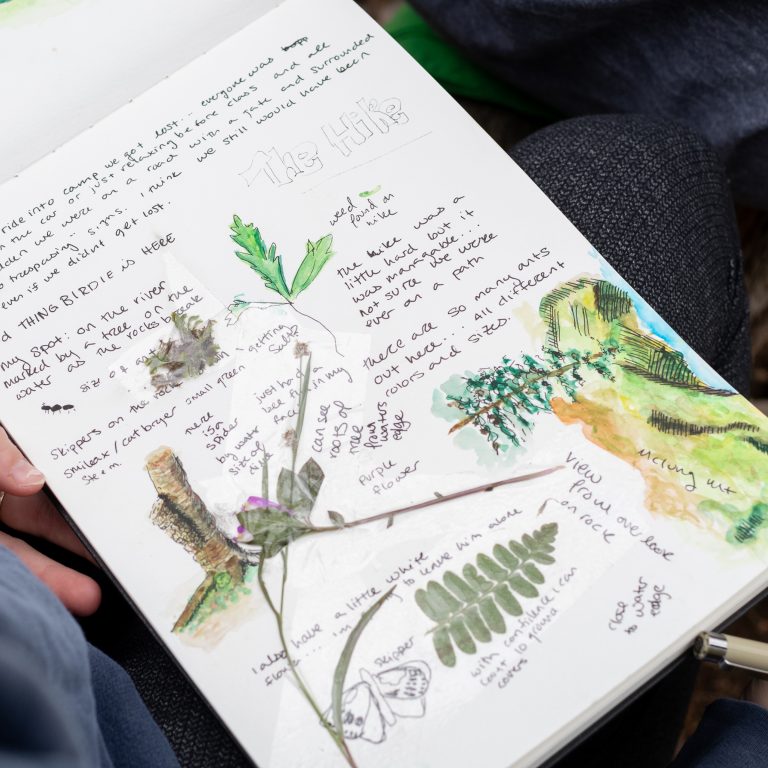 ride into camp we got lost... everyone was
the car or just relaxing before class and all
we were on a road with a gate and surrounded
trespassing signs. I think we still would have been
even if we didnt get lost.
The Hike
weed
found on
hike
the hike was a
little hard but it
was manageable...
Not sure we were
ever on a path
THING BIRDIE IS HERE
my spot: on the river
marked by a tree on the
water as the rocks break
There are so many ants
out here... all different
colors and sizes
size of ant
Skippers on the rock
smilax / catbryer small green
stem
getting
just had a
bee fly in my
face
there
is a
spider
by water
size of
can see
roots of
tree
from
waters
edge
Purple
flower
Mclong mt
view
from overlook
on rock
close to water
edge
I also have a little white
to leave him alone
skipper
with confidence I can
count 10 ground
covers